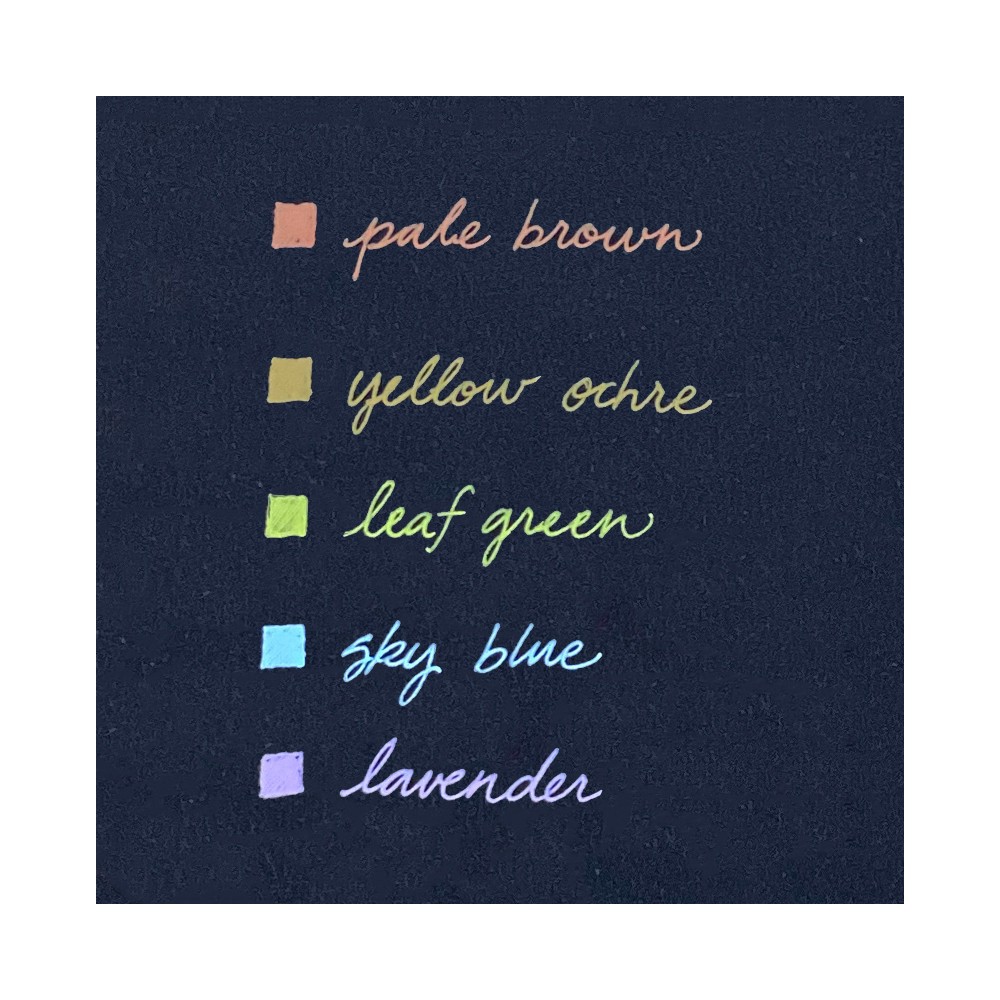 pale brown
yellow ochre
leaf green
sky blue
lavender